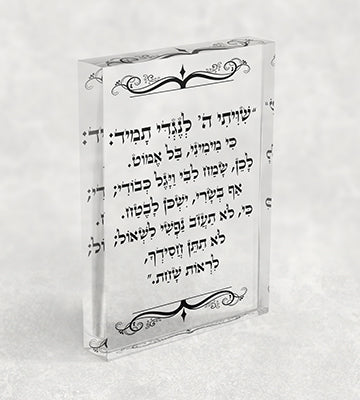 "שִׁוִּיתִי ה' לְנֶגְדִּי תָמִיד:
כִּי מִימִינִי, בַּל אֶמּוֹט.
לָכֵן, שָׂמַח לִבִּי וַיָּגֶל כְּבוֹדִי;
אַף בְּשָׂרִי, יִשְׁכֹּן לָבֶטַח.
כִּי, לֹא תַעֲזֹב נַפְשִׁי לִשְׁאוֹל;
לֹא תִתֵּן חֲסִידְךָ,
לִרְאוֹת שָׁחַת."